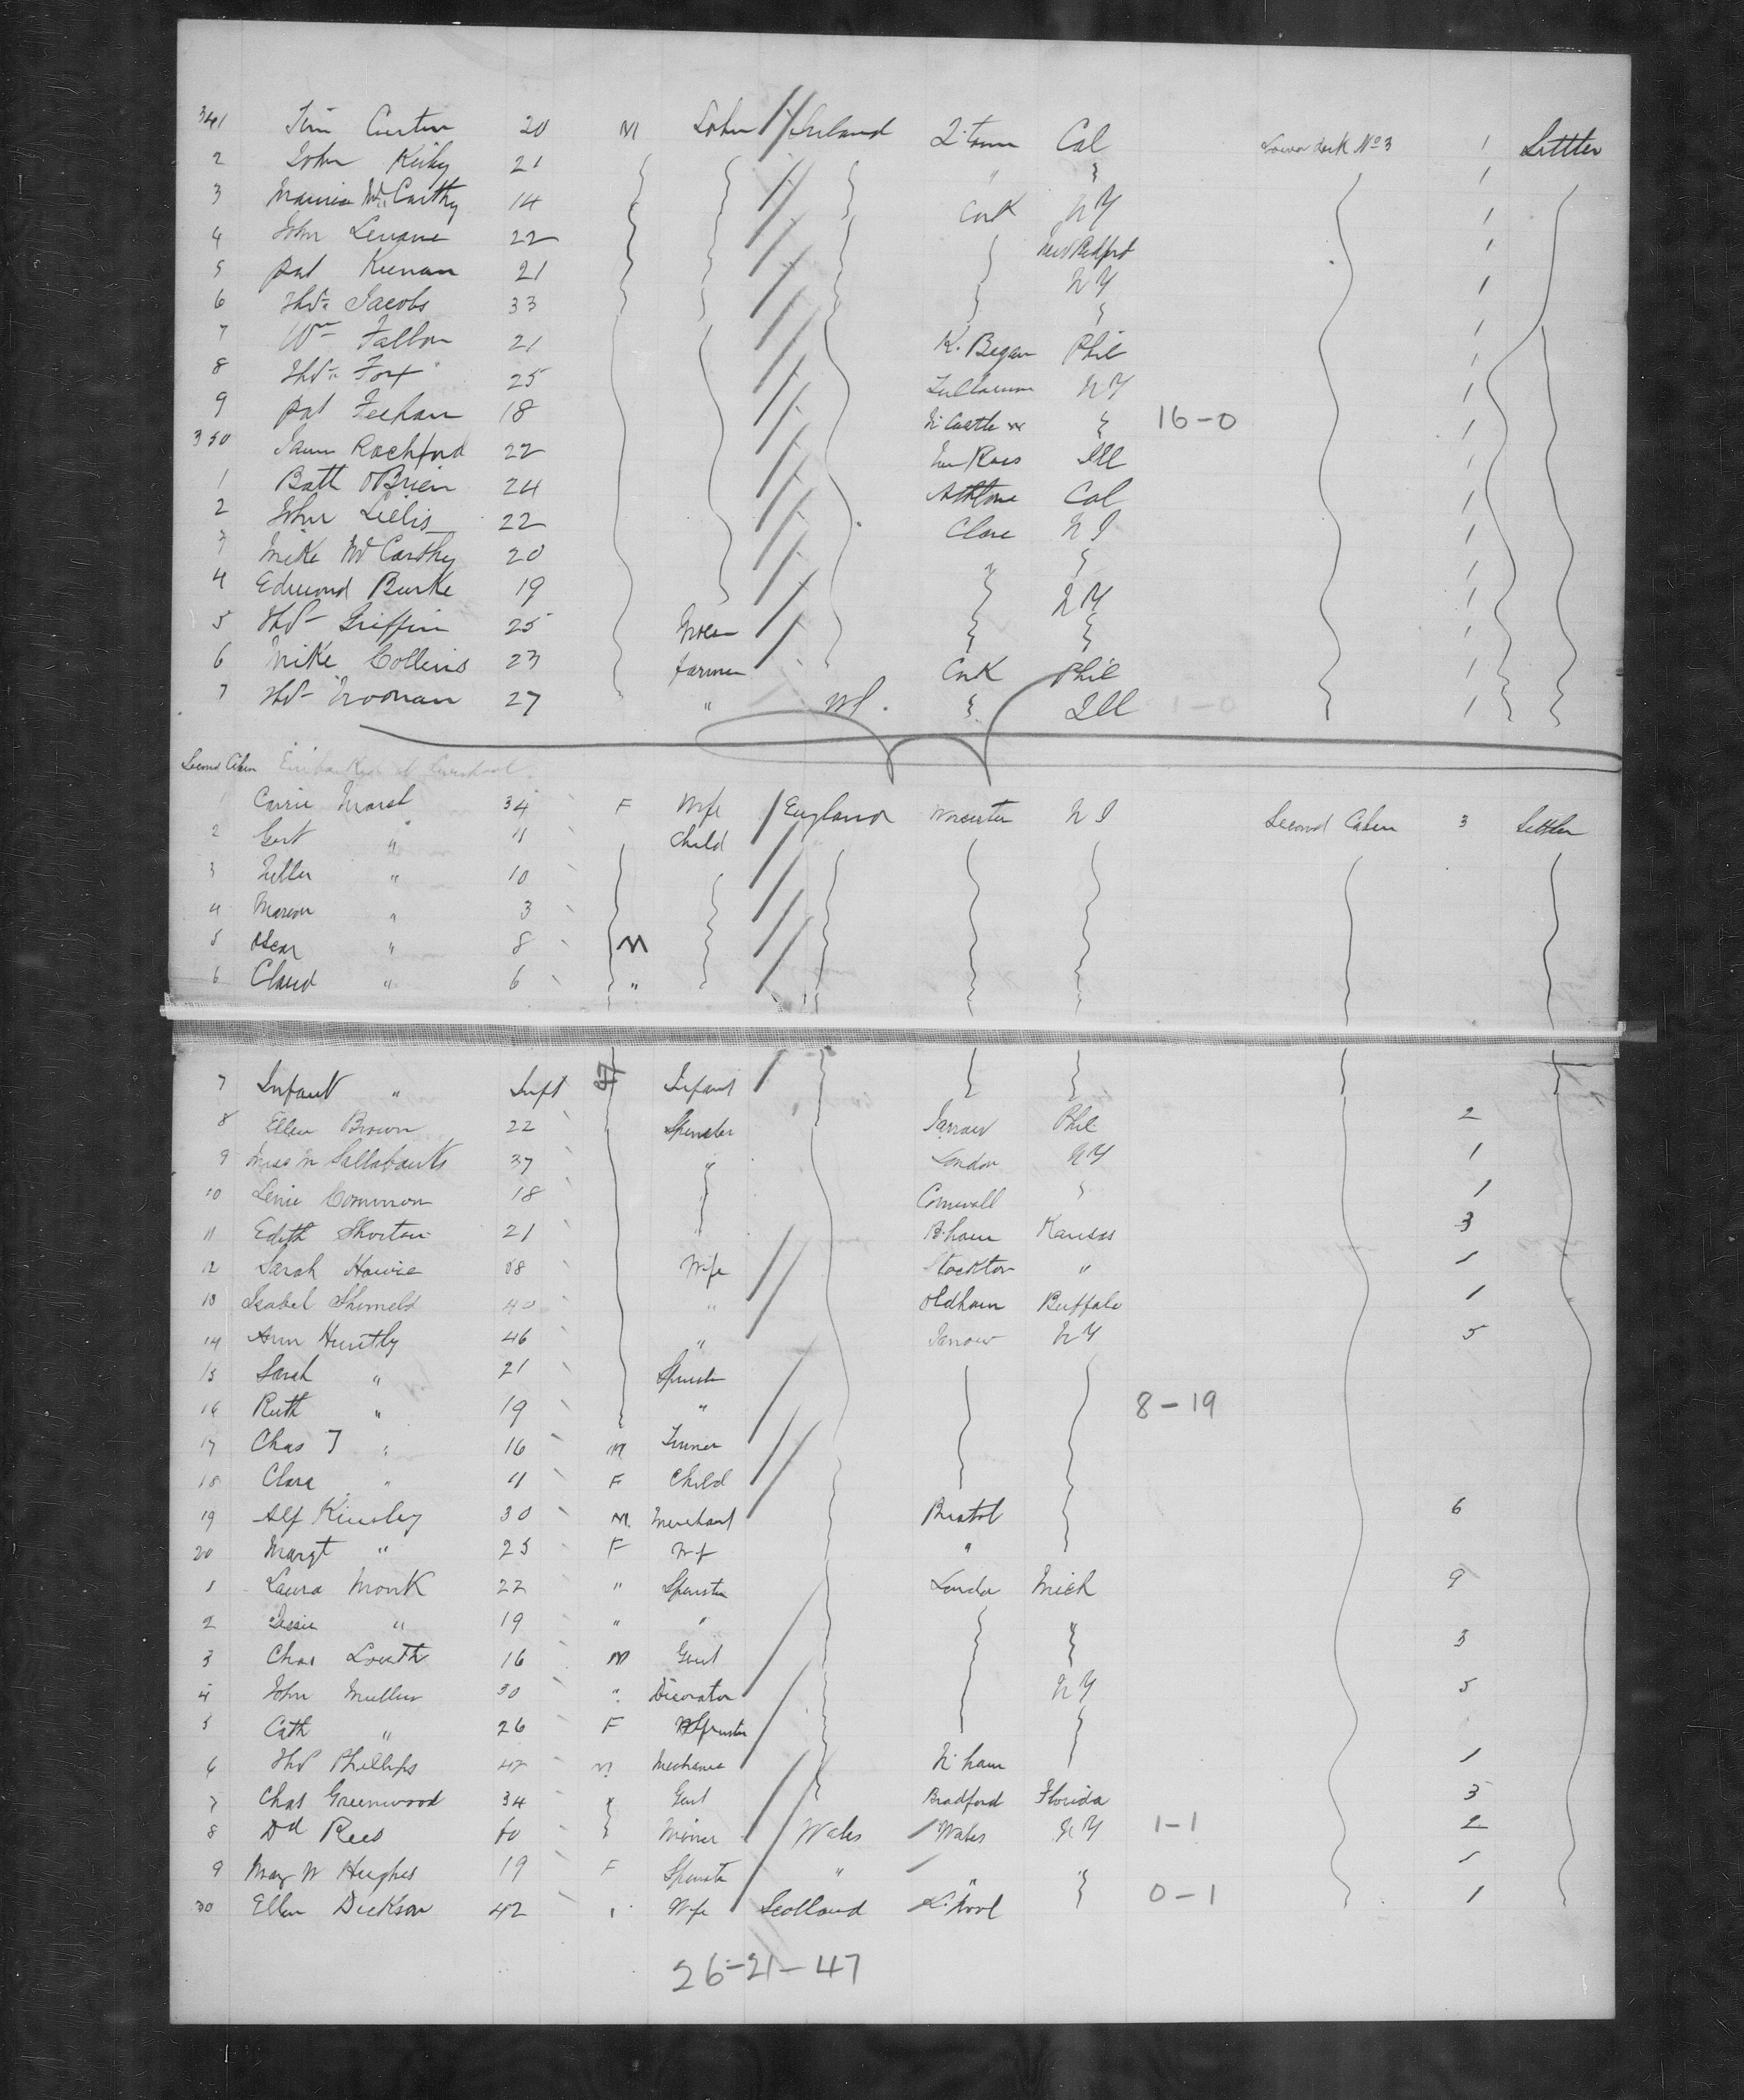 341 Tim Curtin 20 M Labr Ireland Q.town Cal Lower deck No 3 1 Settler
2 John Kirby 21 " 1
3 Maurice McCarthy 14 Cork NY 1
4 John Lenane 22 New Bedford 1
5 Pat Keenan 21 NY 1
6 Thos Jacobs 33 1
7 Wm Fallon 21 K. Began Phil 1
8 Thos Fox 25 Tullamore NY 1
9 Pat Feehan 18 N Castle W 16-0 1
350 James Rochford 22 New Ross Ill 1
1 Batt O'Brien 24 Athlone Cal 1
2 John Lillis 22 Clare N J 1
3 Mike McCarthy 20 " 1
4 Edmond Burke 19 NY 1
5 Thos Griffin 25 1
6 Mike Collins 23 farmer Cork Phil 1
7 Thos Noonan 27 " Ill 1-0 1
Second Cabin Embarked at Liverpool
1 Carrie Marsh 34 F Wife England Worcester N J Second Cabin 3 Settler
2 Gert " 11 Child
3 " 10
4 Marion " 3
5 Oscar " 8 M
6 Claud " 6 "
7 Infant " Inft Infant
8 Ellen Brown 22 Spinster Jarrow Phil 2
9 Miss M Sallabanks 37 " London NY 1
10 Lenie Common 18 Cornwall 1
11 Edith Shorten 21 " B.ham Kansas 3
12 Sarah Howie 58 Wife Stockton " 1
13 Isabel 40 " Oldham Buffalo 1
14 Ann Huntly 46 " Jarrow NY 5
15 Sarah " 21 Spinster
16 Ruth " 19 " 8-19
17 Chas J " 16 M
18 Clara " 11 F Child
19 Alf Kinsley 30 M Merchant Bristol 6
20 Margt " 25 F Wf "
1 Laura Monk 22 " Spinster London Mich 9
2 Jessie " 19 " "
3 Chas Louth 16 M Gent 3
4 John Muller 30 " Decorator NY 5
5 Cath " 26 F Spinster
6 Thos Phillips 42 M Mechanic N.ham 1
7 Chas Greenwood 34 " Gent Bradford Florida 3
8 Dd Rees 60 Miner Wales Wales NY 1-1 2
9 Mary W Hughes 19 F Spinster " " 1
30 Ellen Dickson 42 " Wife Scotland L.pool 0-1 1
26-21-47